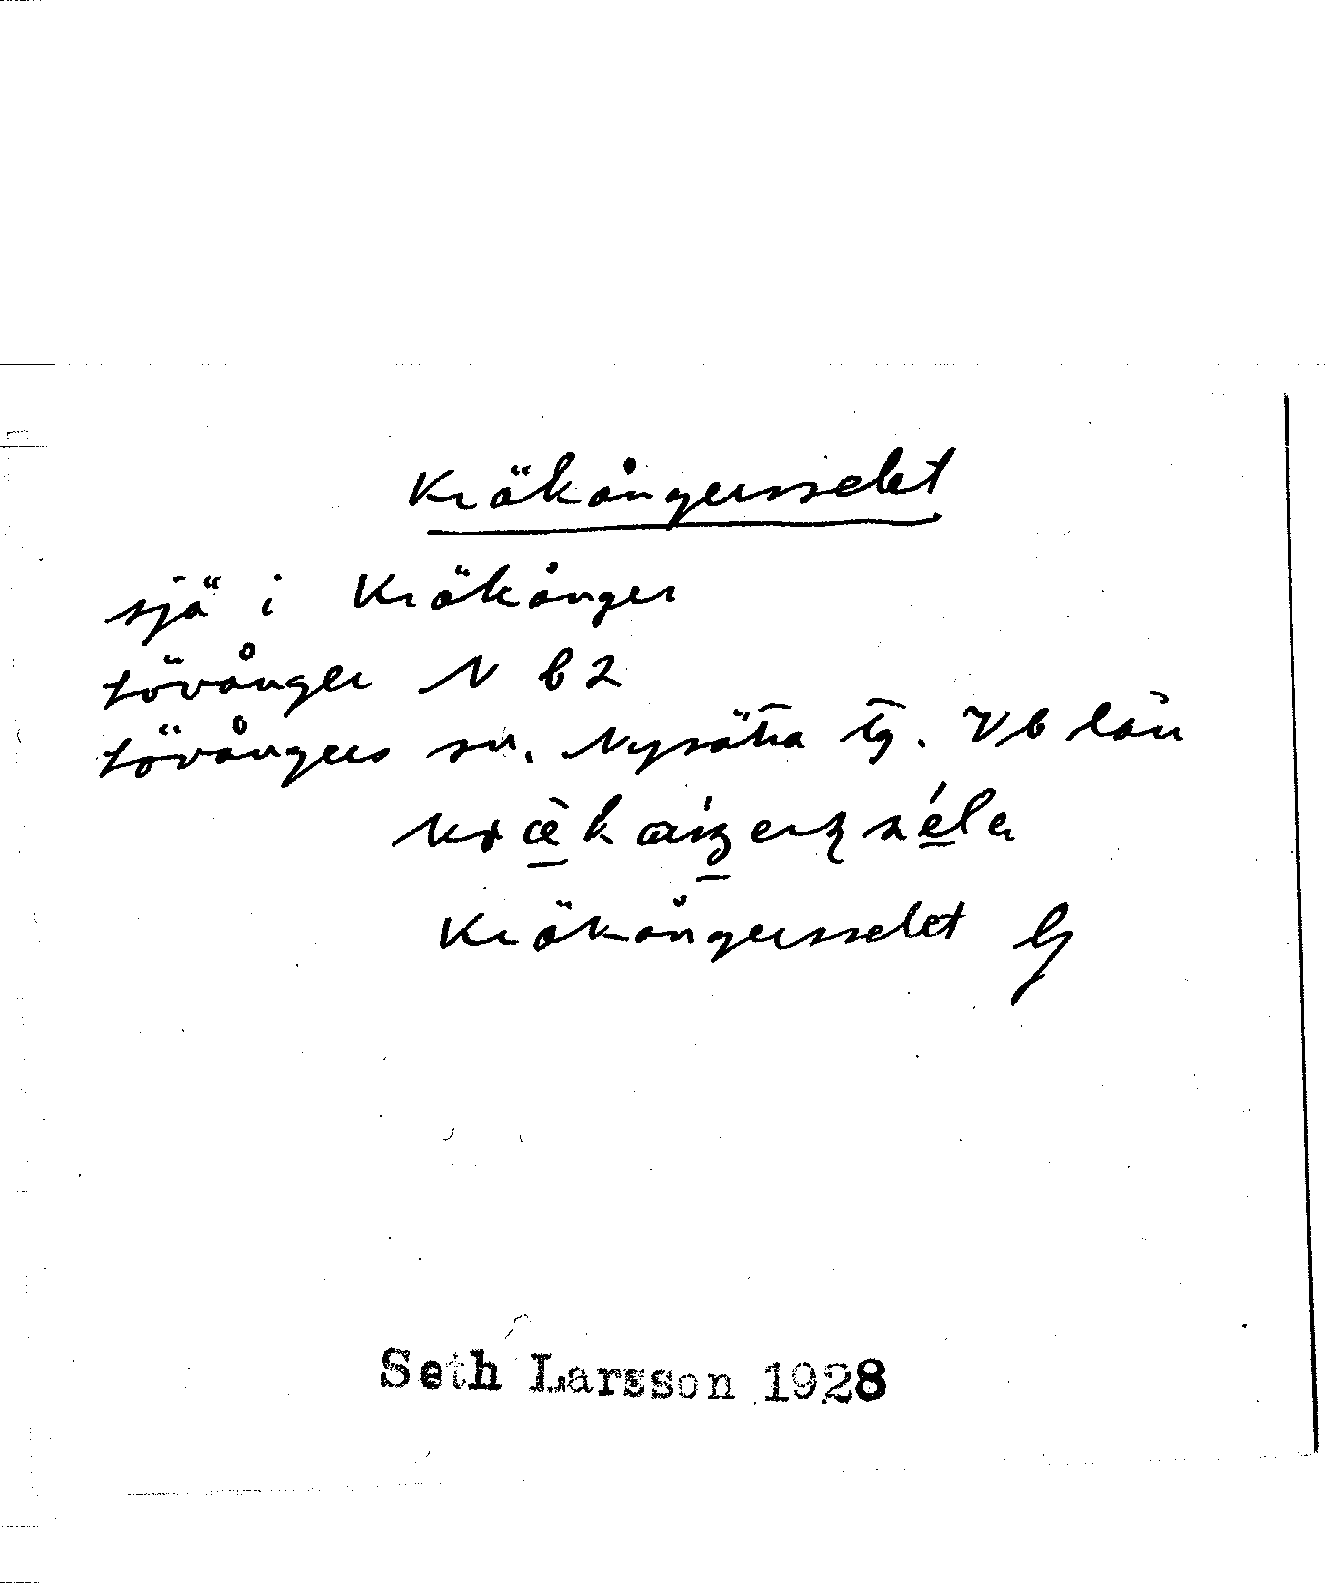 Kräkångersselet
sjä i Kräkånger
Lövånger N b 2
Lövångers sn. Nysätra tg. Vb län
Kräkångersselet G
Seth Larsson 1928